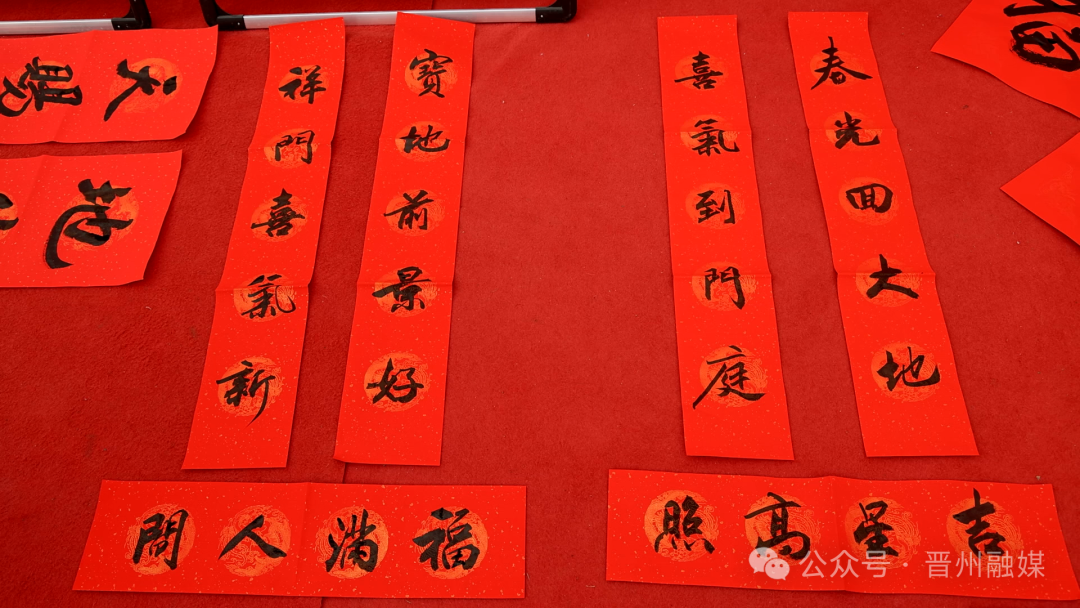 春光回大地
喜氣到門庭
吉星高照
寶地前景好
祥門喜氣新
福满人間
天賜
地
公众号·晋州融媒